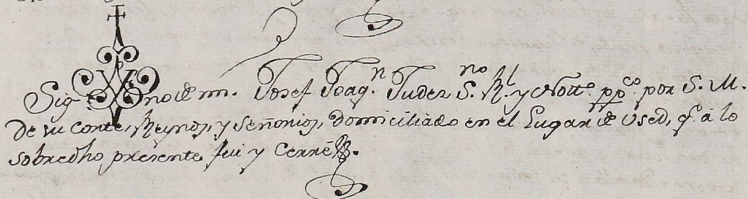 Sig no de mi Josef Joaqn. Judez Sno. Rl. y Notto. ppco. por S. M.
de su corte, Reynos, y Señorios, domiciliado en el Lugar de Used, qe. à lo
sobredho presente fui y Cerré